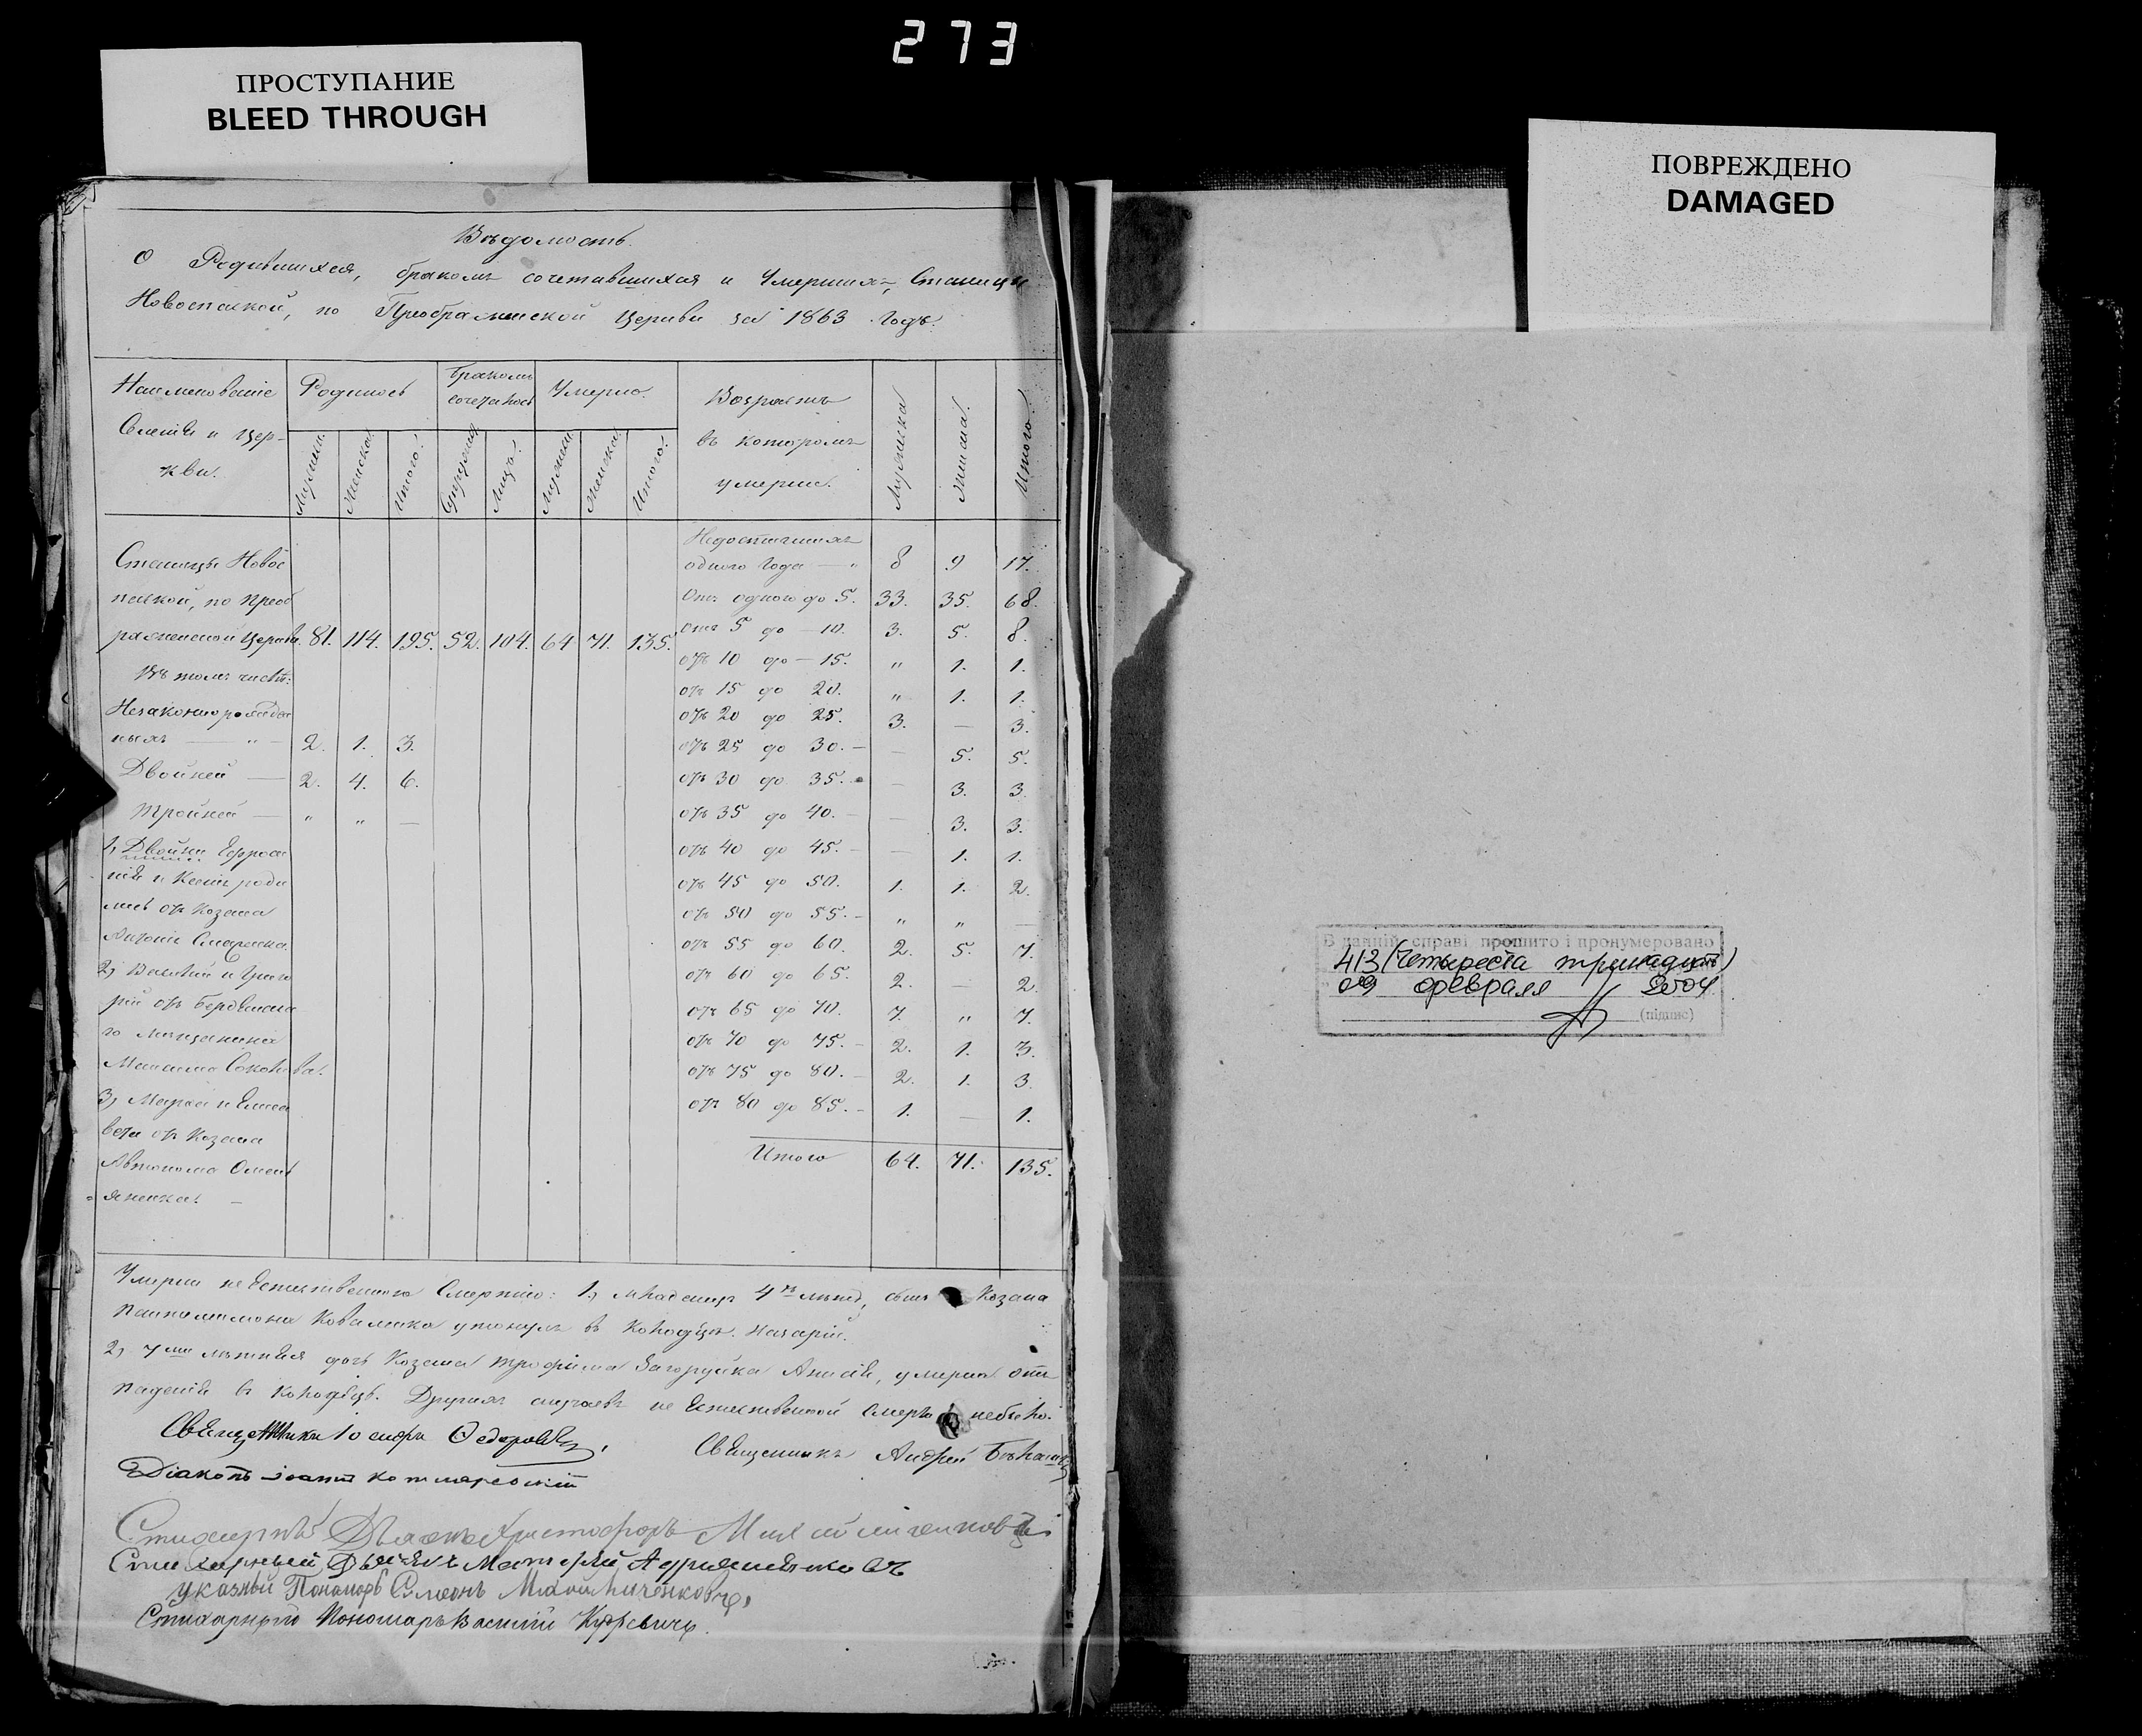 273
ПРОСТУПАНИЕ
BLEED THROUGH
ПОВРЕЖДЕНО
DAMAGED
Вѣдомость.
О Родившихся, бракомъ сочетавшихся и Умершихъ, Станицы
Новоспаской, по Преображенской Церкви за 1863 Годъ.
Наименованіе Селенія и Церкви.
Родилось
Бракомъ сочеталось
Умерло.
Возрастъ въ которомъ умерли.
Мужеска
Женска
Итого.
Мужеска Женска Итого. Супруж. Лицъ. Мужеска Женска Итого.
Недостигшихъ
одного Года — " 8 9 17.
Станицы Новос
паской, по Преоб
раженской Церкви. 81. 114. 195. 52. 104. 64 71. 135.
Въ томъ числѣ:
Незаконнорожден
ныхъ — " — 2. 1. 3.
Двойней — 2. 4. 6.
Тройней — " " —
1, Двойни Ефроси
нія и Ксенія роди
лись отъ Козака
2, Василій и Григо
рій отъ Бердянска
го мѣщанина
3, Марѳа и Елиса
вета отъ Козака
Автонома Омель
яненка. —
Отъ одного до 5. 33. 35. 68.
отъ 5 до — 10. 3. 5. 8.
отъ 10 до — 15. " 1. 1.
отъ 15 до 20. " 1. 1.
отъ 20 до 25. 3. — 3.
отъ 25 до 30. — — 5. 5.
отъ 30 до 35. — — 3. 3.
отъ 35 до 40. — — 3. 3.
отъ 40 до 45. — — 1. 1.
отъ 45 до 50. 1. 1. 2.
отъ 50 до 55. — " " —
отъ 55 до 60. 2. 5. 7.
отъ 60 до 65. 2. — 2.
отъ 65 до 70. 7. " 7.
отъ 70 до 75. — 2. 1. 3.
отъ 75 до 80. — 2. 1. 3.
отъ 80 до 85. — 1. — 1.
Итого 64. 71. 135.
Умерли неЕстественною Смертію: 1, младенецъ 4хъ лѣтъ, сынъ Козака
Пантелимона Коваленка утонулъ въ Колодцѣ. Назарій.
2, 7ми лѣтняя дочь Козака Трофима Загоруйка Анисія, умерла отъ
паденія въ Колодезь. Другихъ случаевъ не Естественной Смерти небыло.
Священникъ Іосифъ Ѳедоровъ,
Священникъ Андрей
Діаконъ Іоаннъ Котляревскій
Стихарный Дьячекъ Христофоръ
Стихарный Дьячекъ Матѳей Андріенковъ
Указный Пономарь Симеонъ
Стихарный Пономарь Василій
В даній справі прошито і пронумеровано
413 (Четыреста тринадцать)
09 февраля 2004
(підпис)